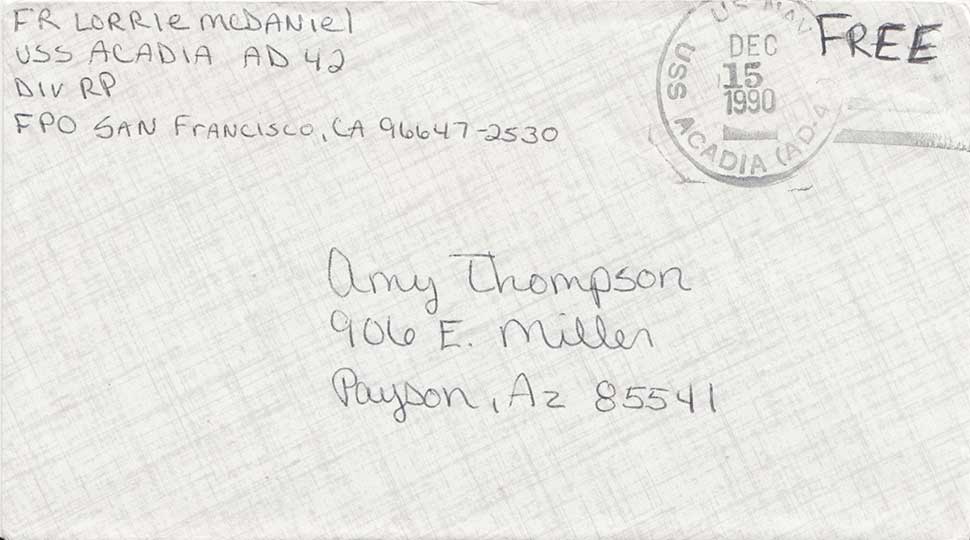 FR LORRIE McDANIEL
USS ACADIA AD 42
DIV RP
FPO SAN FRANCISCO, CA 96647-2530
US NAVY
DEC
15
1990
USS ACADIA (AD-4
FREE
Amy Thompson
906 E. Miller
Payson, Az 85541